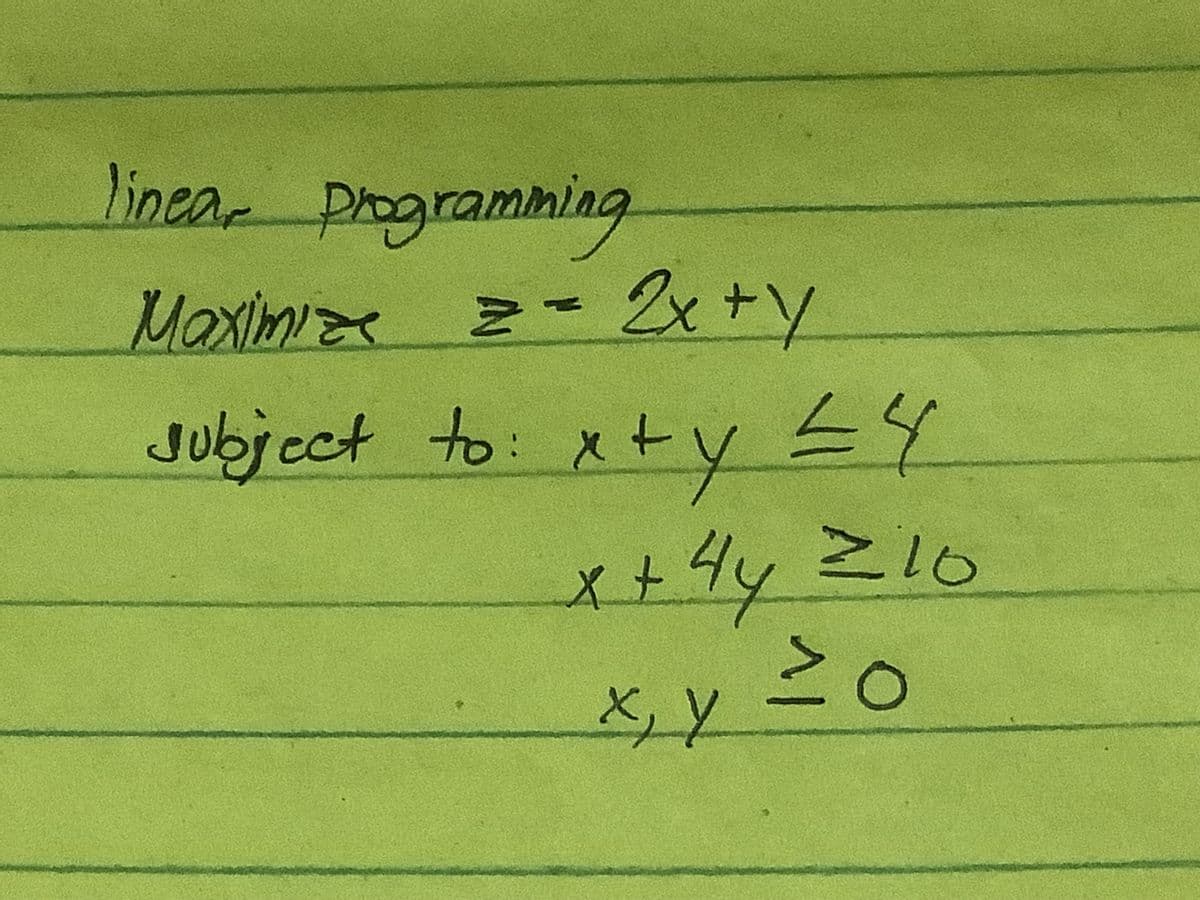 linear programming
Maximize z = 2x + y
subject to: x + y ≤ 4
x + 4y ≥ 10
x, y ≥ 0